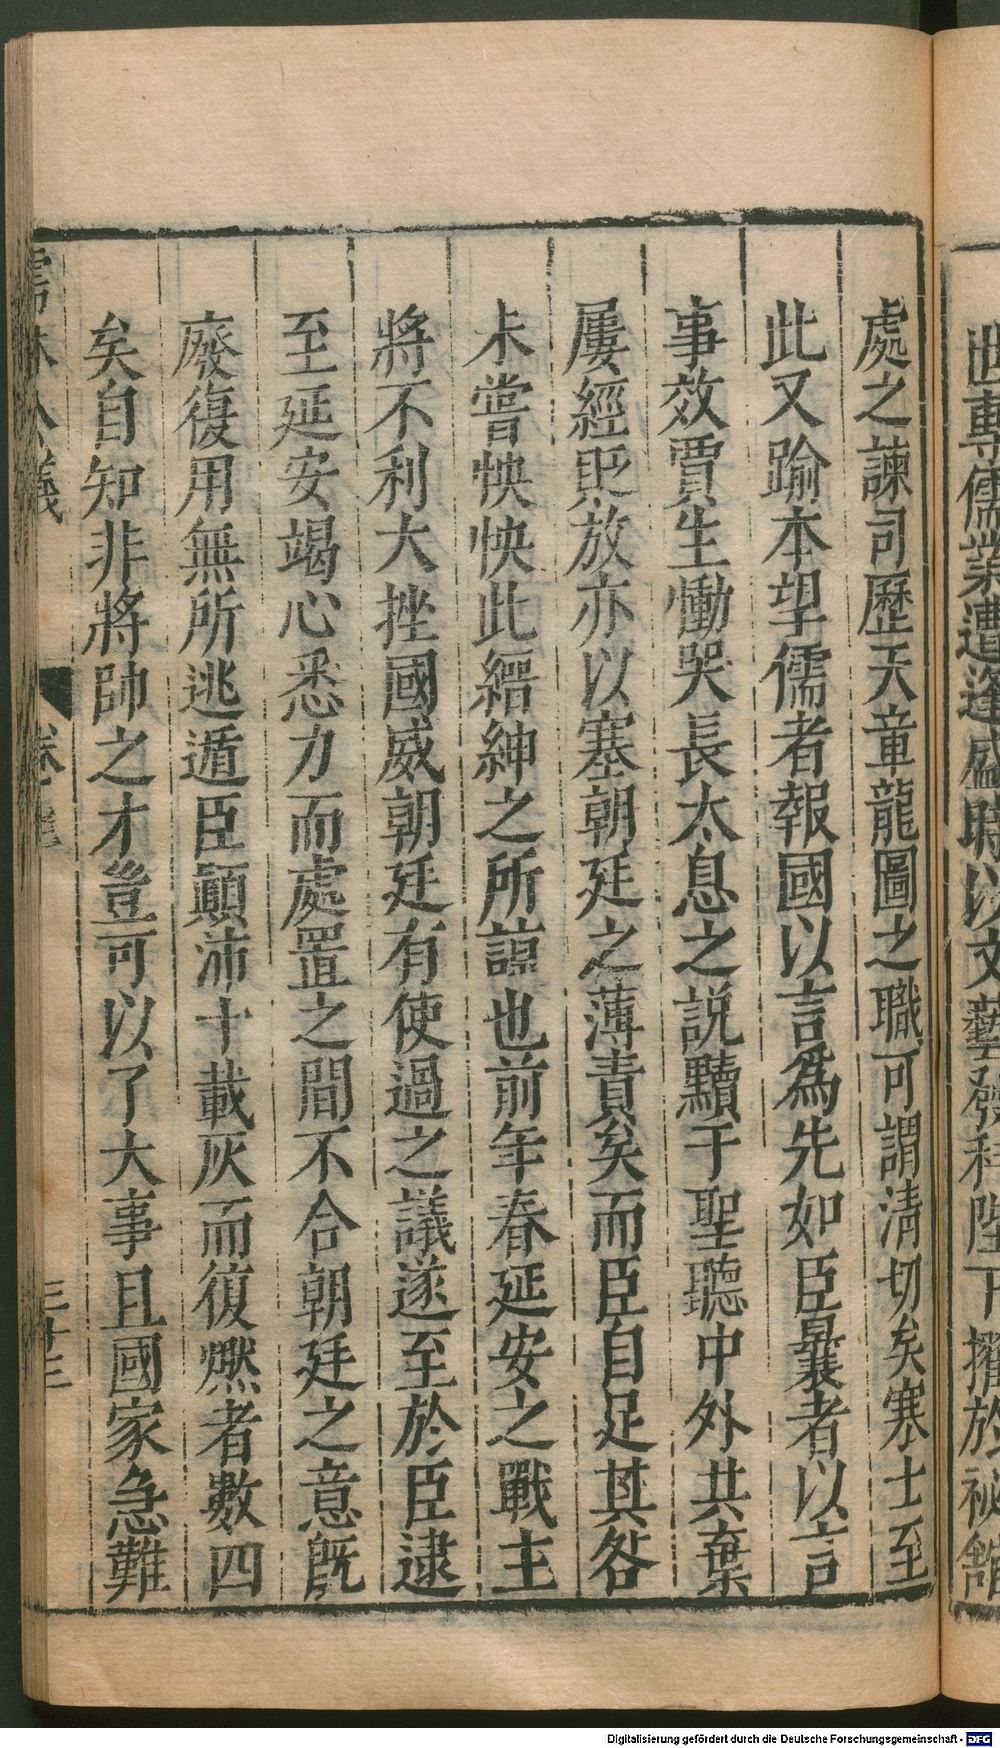 世專儒業遭逢盛時以文藝發科陛下擢於祕館
處之諫司歷天章龍圖之職可謂清切矣寒士至
此又踰本望儒者報國以言爲先如臣曩者以言
事效賈生慟哭長太息之説黷于聖聽中外共棄
屢經貶放亦以塞朝廷之薄責矣而臣自足其咎
未嘗怏怏此縉紳之所諒也前年春延安之戰主
將不利大挫國威朝廷有使過之議遂至於臣逮
至延安竭心悉力而處置之間不合朝廷之意既
廢復用無所逃遁臣顛沛十載灰而復燃者數四
矣自知非將帥之才豈可以了大事且國家急難
儒林公議
卷上
三十三
Digitalisierung gefördert durch die Deutsche Forschungsgemeinschaft - DFG